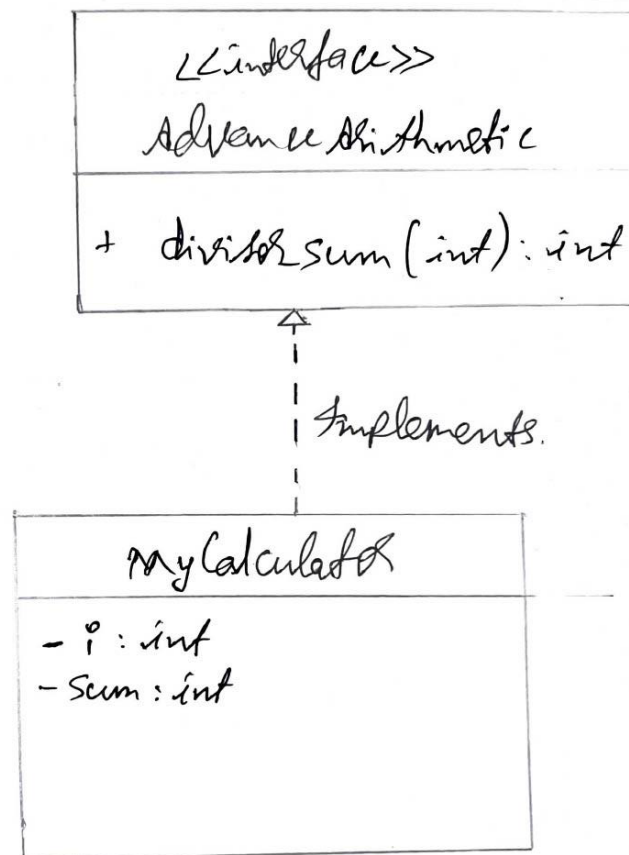 <<interface>>
AdvanceArithmetic
+ divisorsum(int): int
Implements.
MyCalculator
- i : int
- sum : int